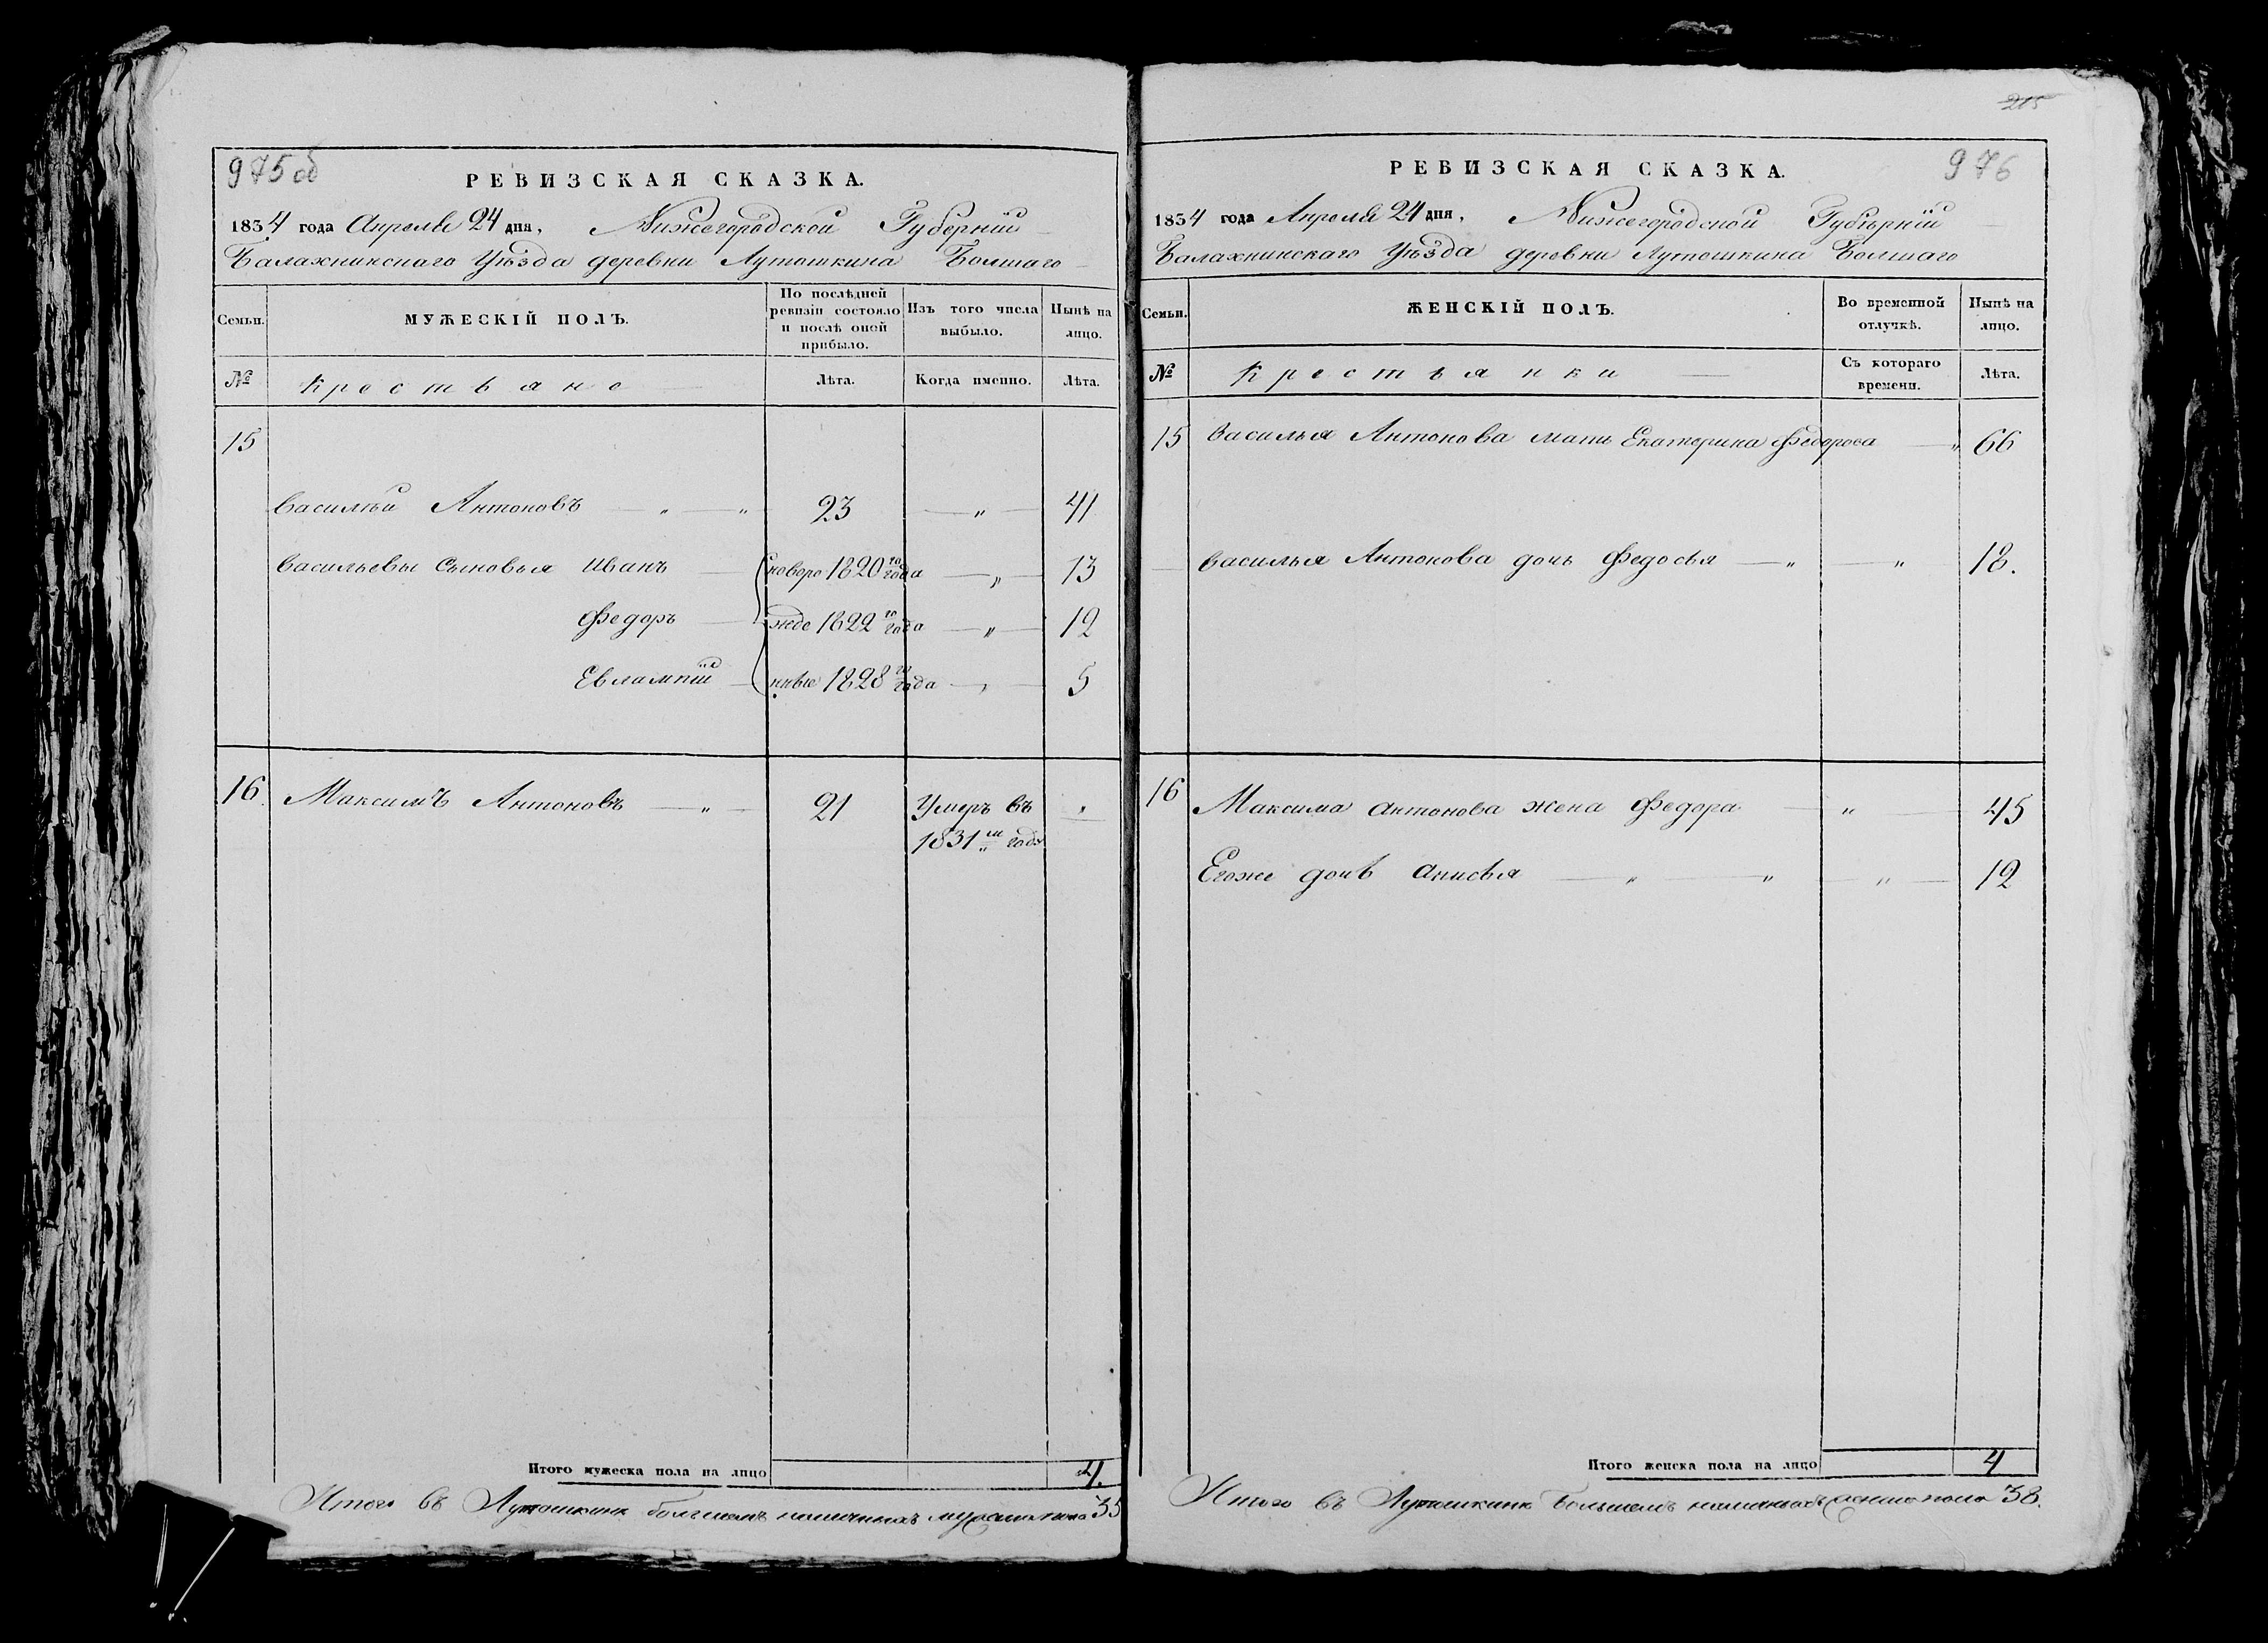 975 об
РЕВИЗСКАЯ СКАЗКА.
1834 года Апреля 24 дня, Нижегородской Губернiи
Балахнинскаго Уѣзда деревни Лутошкина Болшаго
Семьи.
МУЖЕСКIЙ ПОЛЪ.
По послѣдней ревизiи состояло и послѣ оной прибыло.
Изъ того числа выбыло.
Нынѣ на лицо.
№
Крестьяне
Лѣта.
Когда именно.
Лѣта.
15
Василѣй Антоновъ — „ — „ 23 — „ — 41
Васильевы сыновья Иванъ — новоро 1820го года — „ — 13
Федоръ — жде 1822го года — „ — 12
Евлампiй — нные 1828го года — „ — 5
16. Максимъ Антоновъ — „ — 21 Умеръ въ „
1831м году
Итого мужеска пола на лицо 4.
Итого въ Лутошкине болшемъ наличныхъ мужеска пола 35
215
976
РЕВИЗСКАЯ СКАЗКА.
1834 года Апреля 24 дня, Нижегородской Губернiи
Балахнинскаго Уѣзда деревни Лутошкина Болшаго
Семьи.
ЖЕНСКIЙ ПОЛЪ.
Во временной отлучкѣ.
Нынѣ на лицо.
№
Крестьянки —
Съ котораго времени.
Лѣта.
15 Василья Антонова мать Екатерина Федорова — „ 66
Василья Антонова дочь Федосья — „ — „ 18.
16 Максима антонова жена Федора — „ — 45
Егоже дочь анисья — „ — „ — „ — 12
Итого женска пола на лицо 4
Итого въ Лутошкине Большемъ наличныхъ женска пола 38.